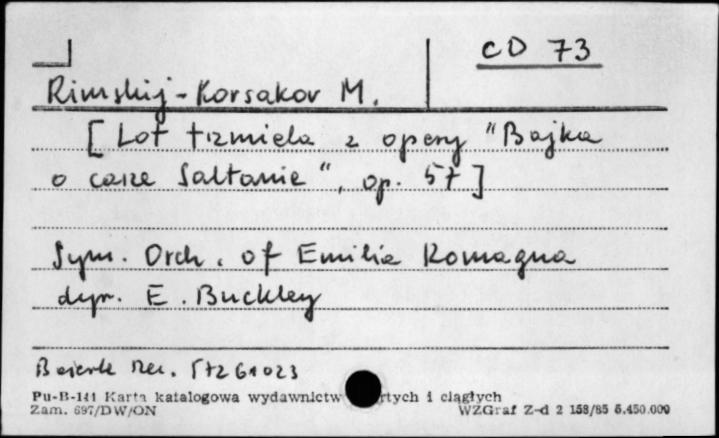 CD 73
Rimskij-Korsakov M.
[Lot trzmiela z opery "Bajka
o carze Sałtanie", op. 57]
Sym. Orch. of Emilia Romagna
dyr. E. Buckley
Rec. 57261023
Pu-B-141 Karta katalogowa wydawnictw i ciągłych
Zam. 697/DW/ON WZGraf Z-d 2 158/85 5.450.000